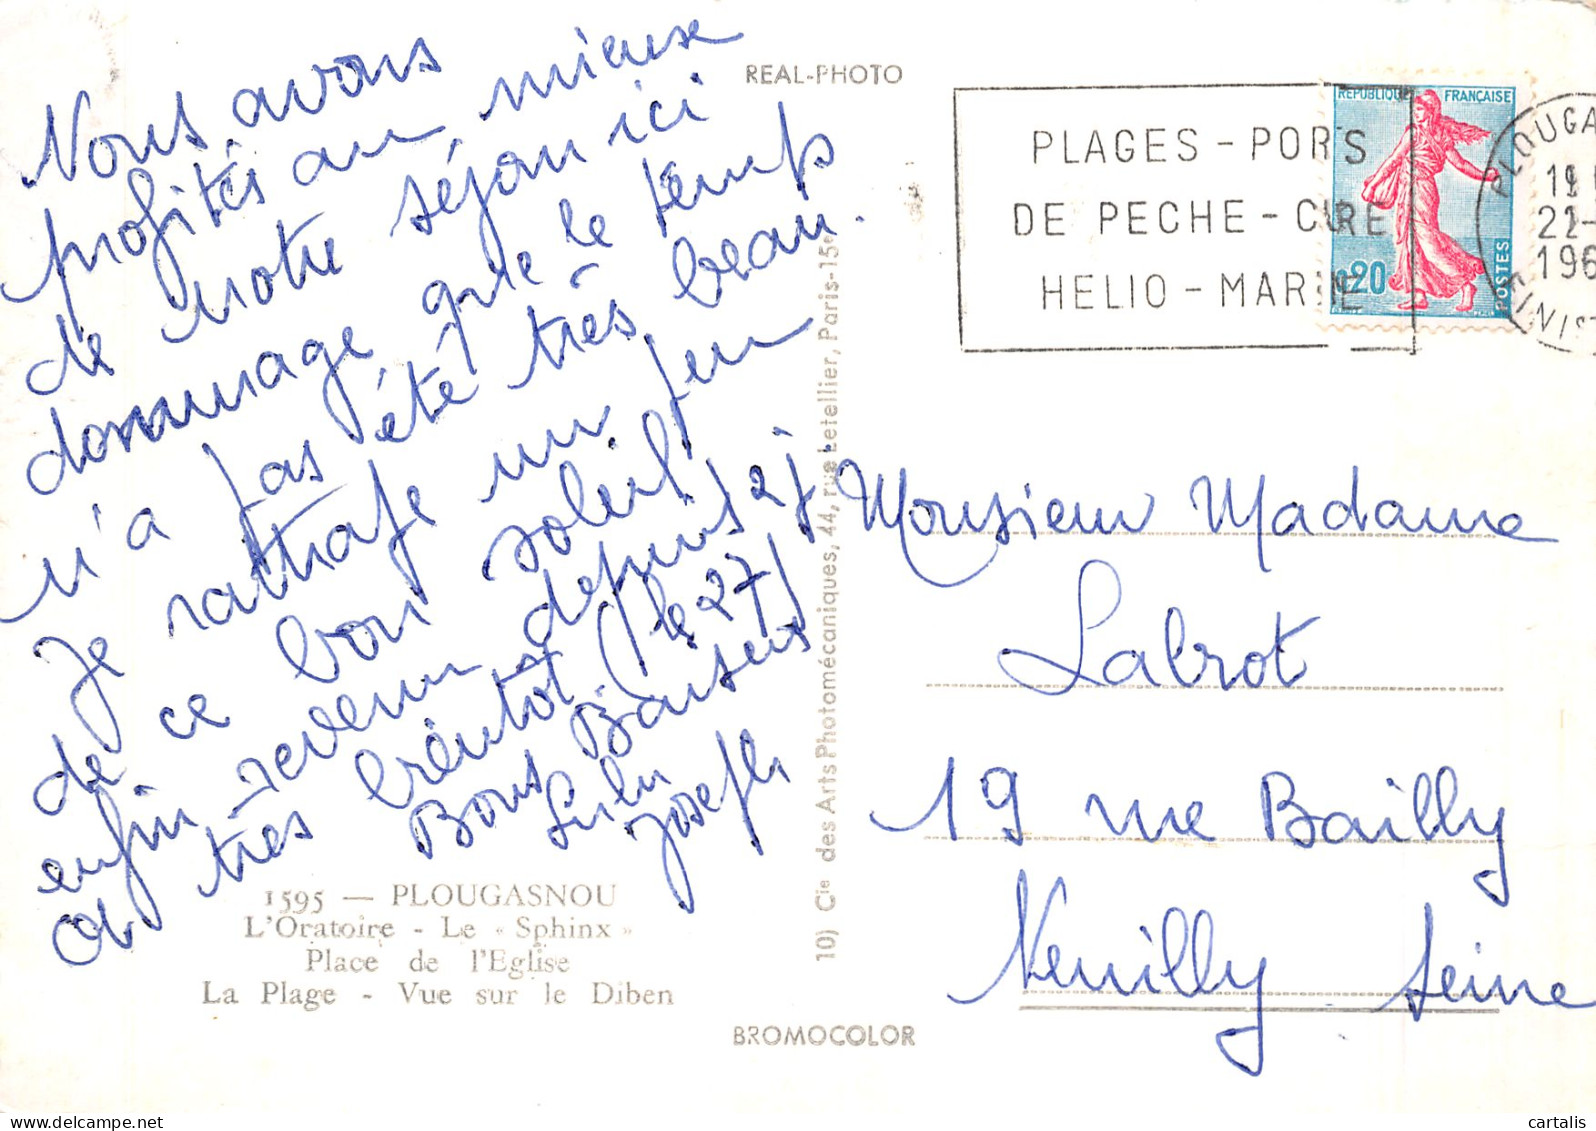 Nous avons
profités au mieux
de notre séjour ici
dommage que le temps
n'a pas été très beau.
Je rattrape un peu
de ce bon soleil
enfin revenu depuis 2 j
A très bientôt (le 27)
Bons Baisers
Lulu
Joseph
1595 — PLOUGASNOU
L'Oratoire - Le « Sphinx »
Place de l'Eglise
La Plage - Vue sur le Diben
REAL-PHOTO
10) Cie des Arts Photomécaniques, 44, rue Letellier, Paris-15e
BROMOCOLOR
PLAGES - PORTS
DE PECHE - CURE
HELIO - MARINE
REPUBLIQUE FRANÇAISE
0.20
POSTES
PLOUGA
19 H
22-
196
FINIS
Monsieur Madame
Labrot
19 rue Bailly
Neuilly Seine
cartalis | delcampe.net